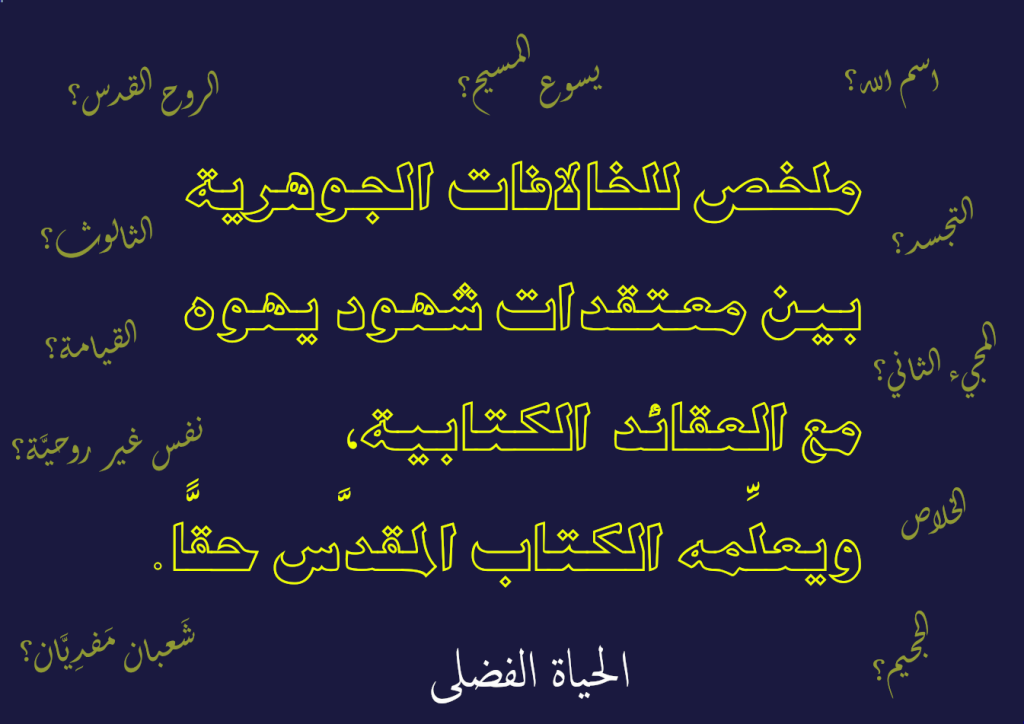 اسم الله؟
يسوع المسيح؟
الروح القدس؟
ملخص للخالافات الجوهرية
التجسد؟
الثالوث؟
بين معتقدات شهود يهوه
المجيء الثاني؟
القيامة؟
مع العقائد الكتابية،
نفس غير روحيَّة؟
الخلاص
ويعلِّمه الكتاب المقدَّس حقًّا.
الجحيم؟
شَعبان مَفدِيَّان؟
الحياة الفضلى